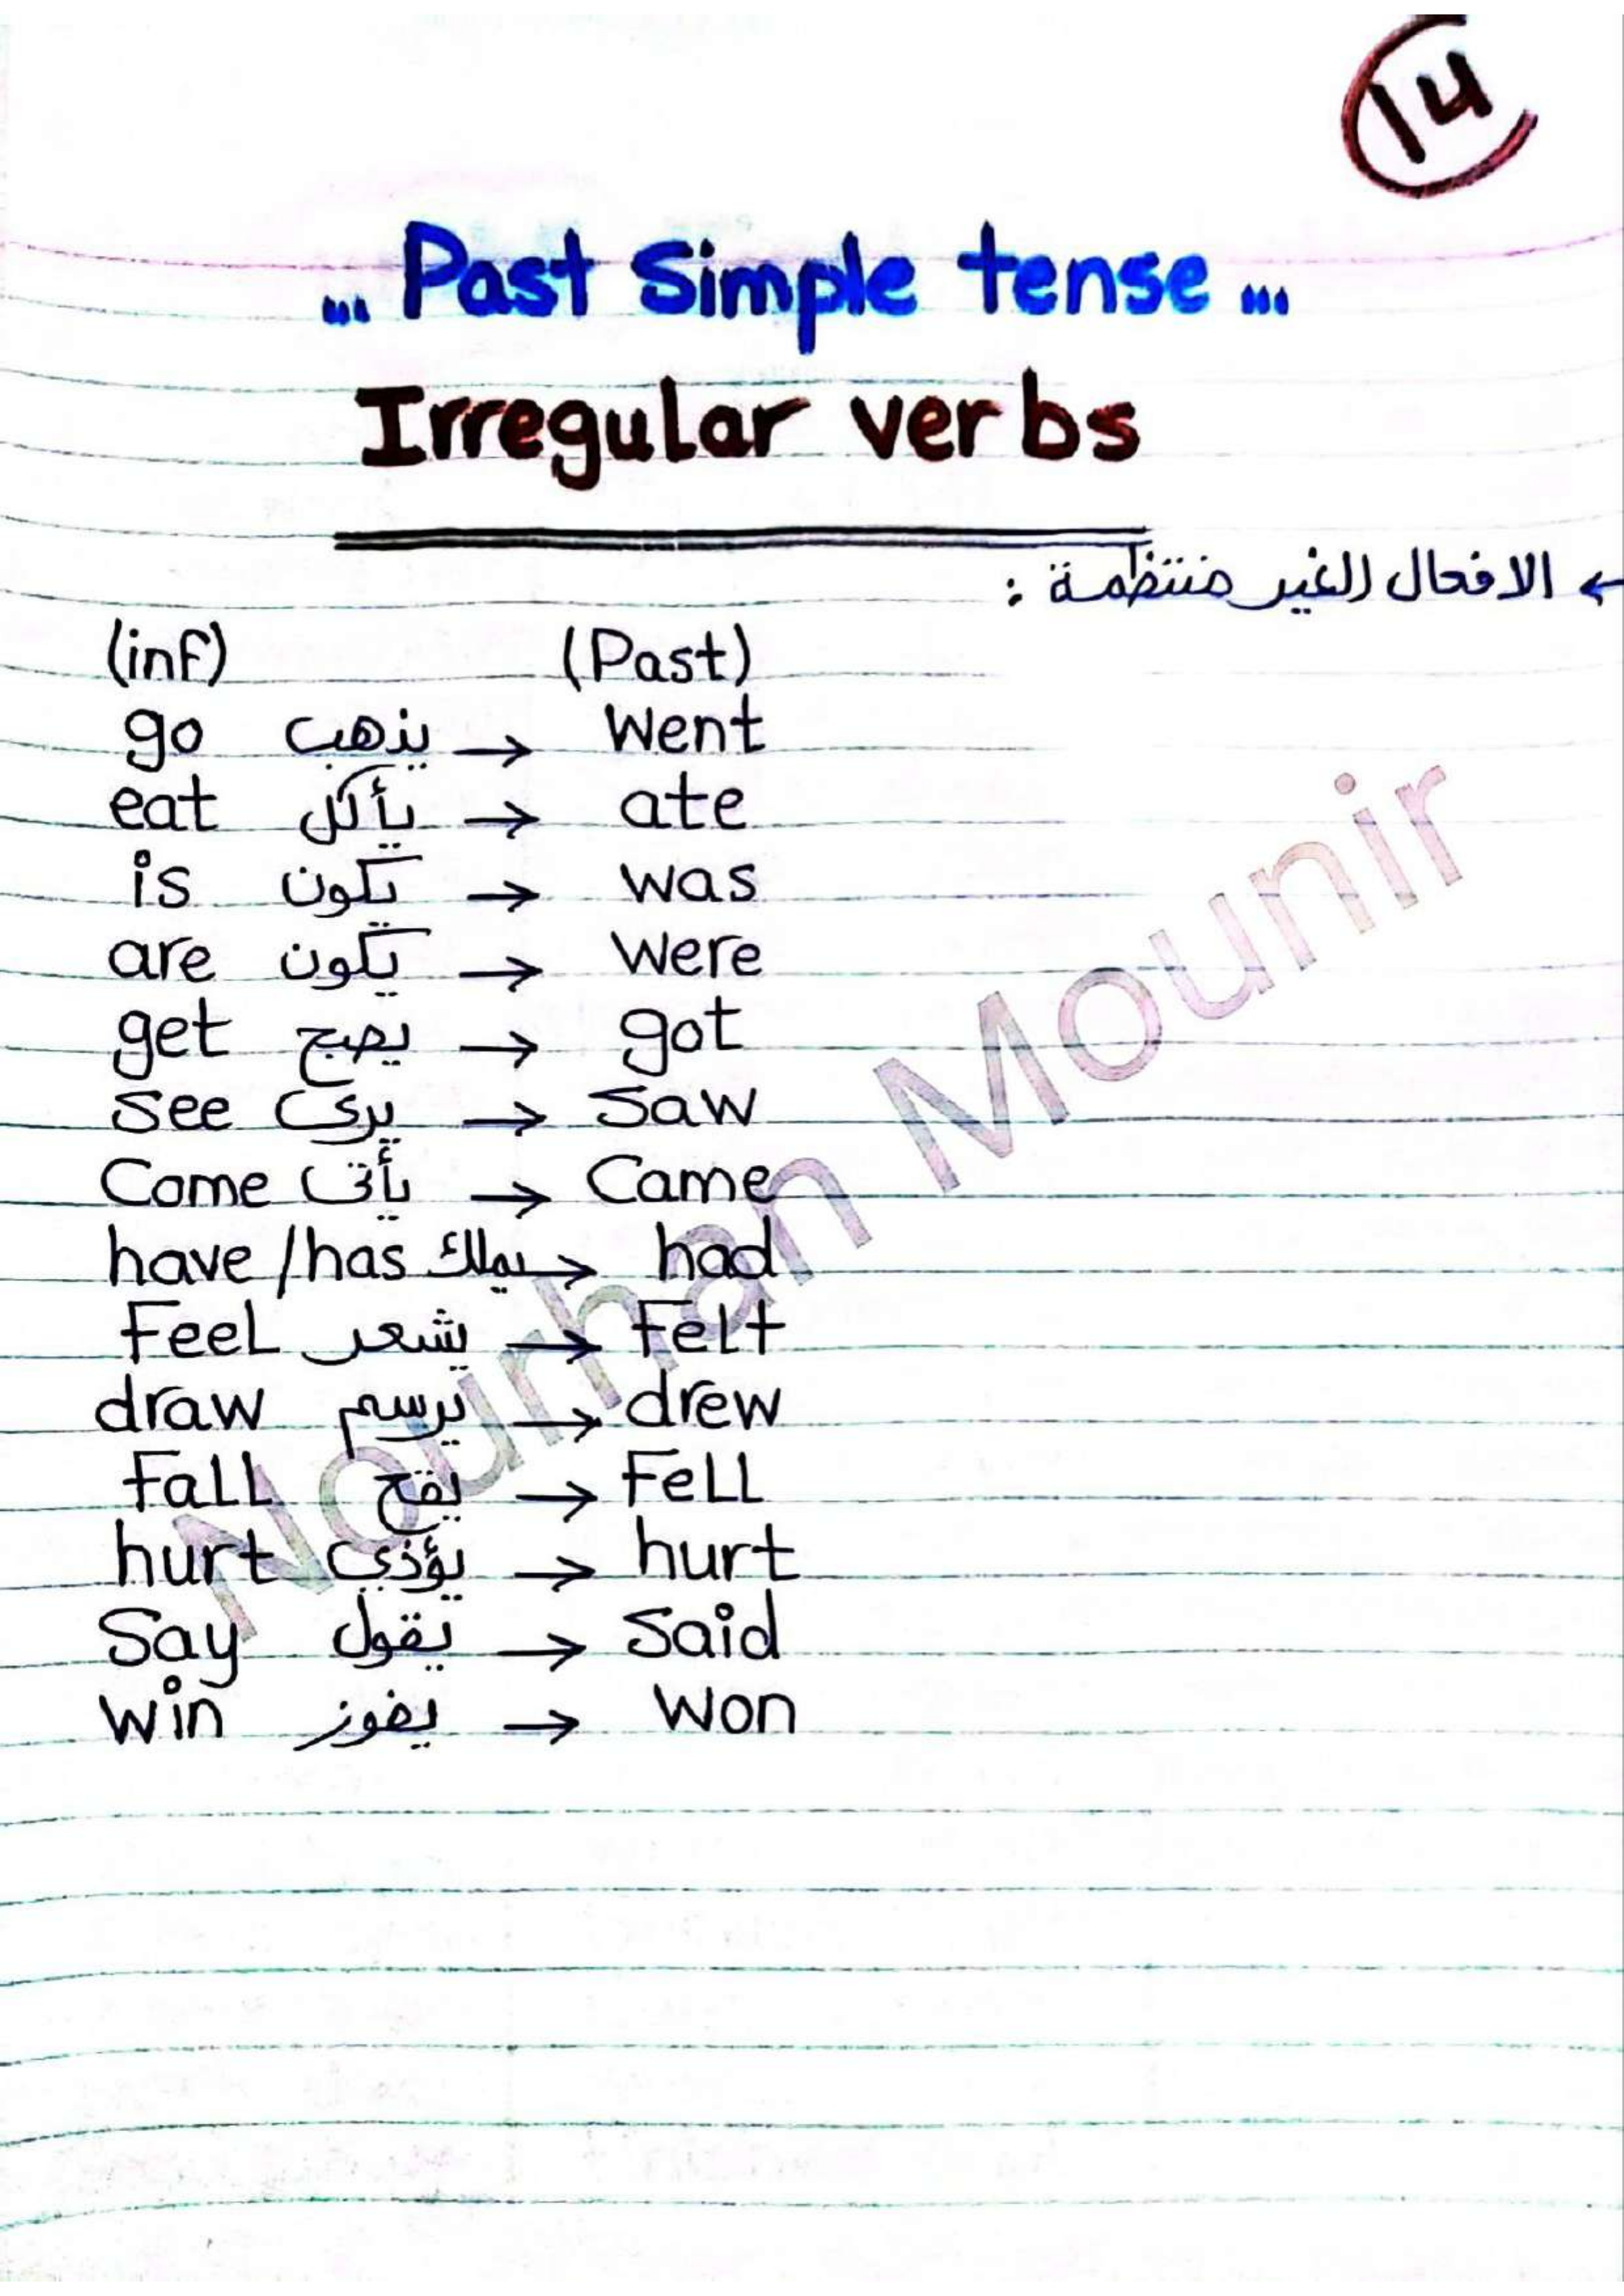 14
... Past Simple tense ...
Irregular verbs
← الافعال الغير منتظمة :
(inf) (Past)
go يذهب → went
eat يأكل → ate
is يكون → was
are يكون → were
get يصبح → got
see يرى → saw
Come يأتى → Came
have / has يملك → had
Feel يشعر → Felt
draw يرسم → drew
Fall يقع → Fell
hurt يؤذى → hurt
Say يقول → Said
win يفوز → won
Nourhan Mounir